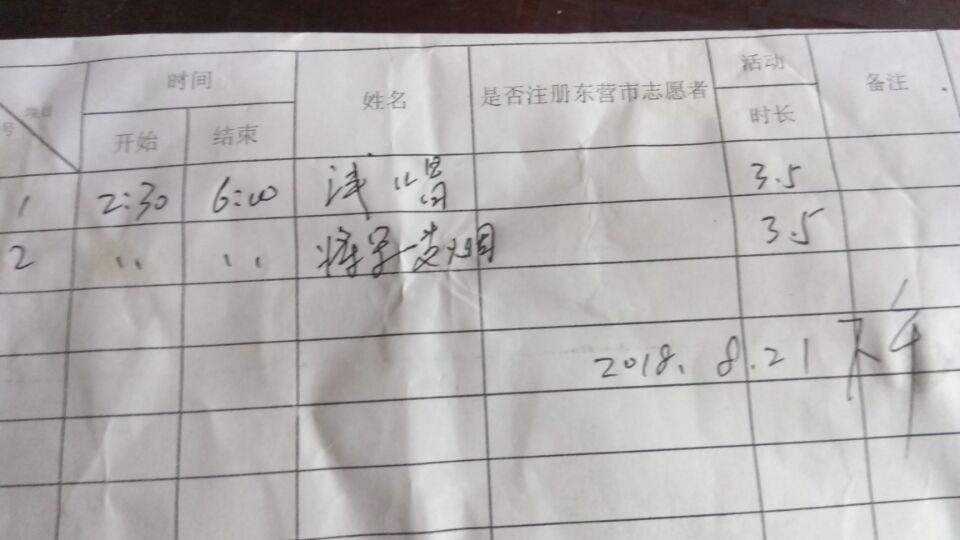 时间 姓名 是否注册东营市志愿者 活动 备注
号 项目 开始 结束 时长
1 2:30 6:00 浅 3.5
2 〃 〃 3.5
2018.8.21